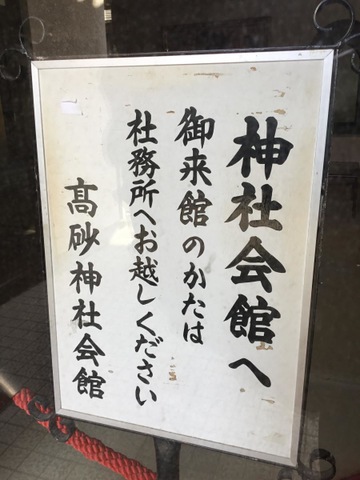 神社会館へ
御来館のかたは
社務所へお越しください
髙砂神社会館